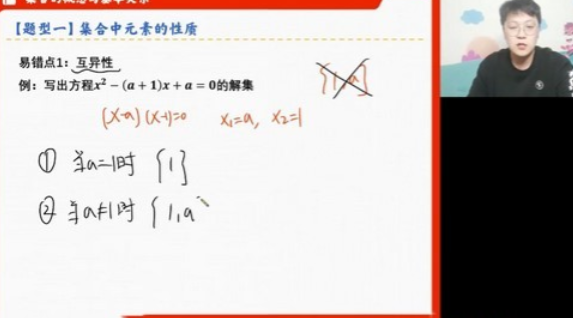 【题型一】集合中元素的性质
易错点1：互异性
例：写出方程x² − (a + 1)x + a = 0的解集
{1,a}
(x-a)(x-1)=0 x₁=a, x₂=1
① 当a=1时 {1}
② 当a≠1时 {1,a